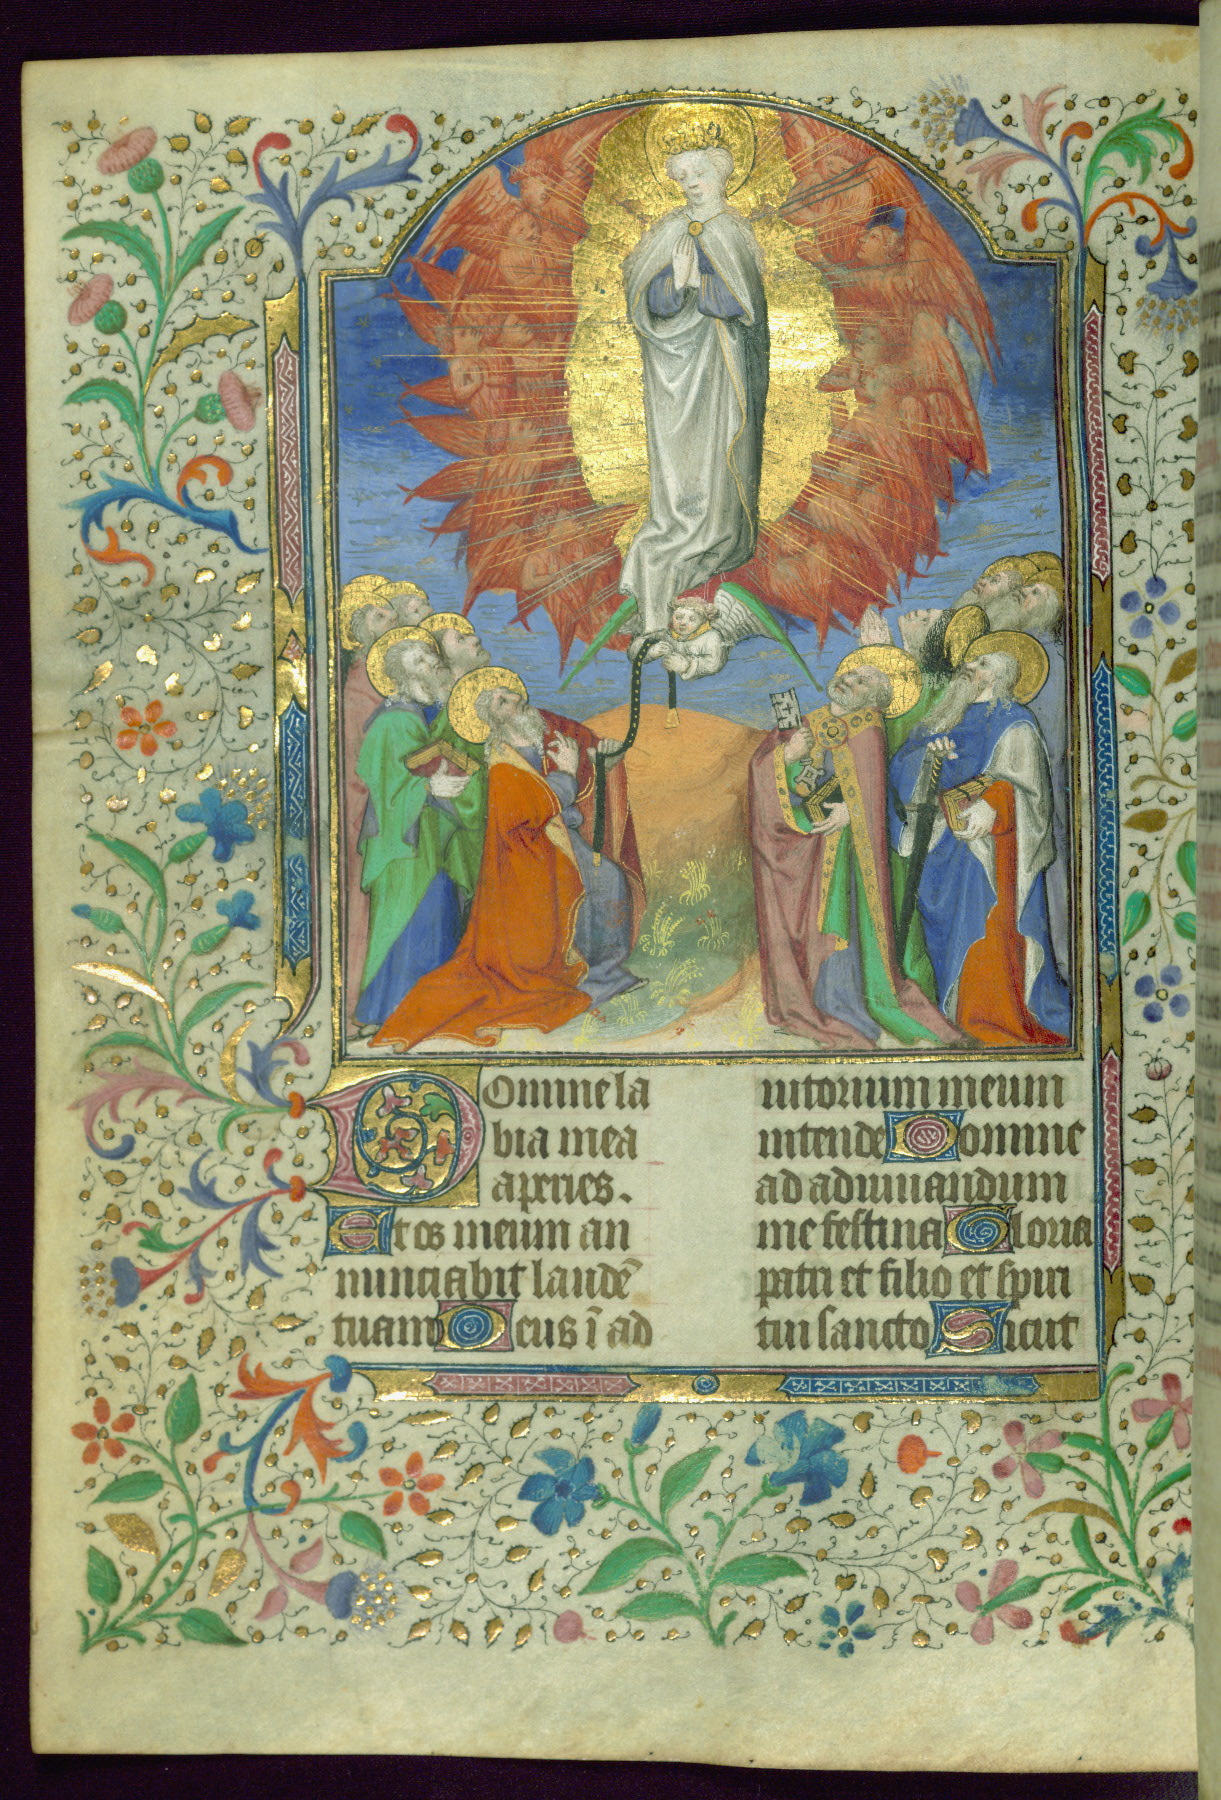 Domine la
bia mea
aperies.
Et os meum an
nunciabit laudē
tuam Deus ī ad
iutorium meum
intende Domine
ad adiuuandum
me festina Gloria
patri et filio et spiri
tui sancto Sicut